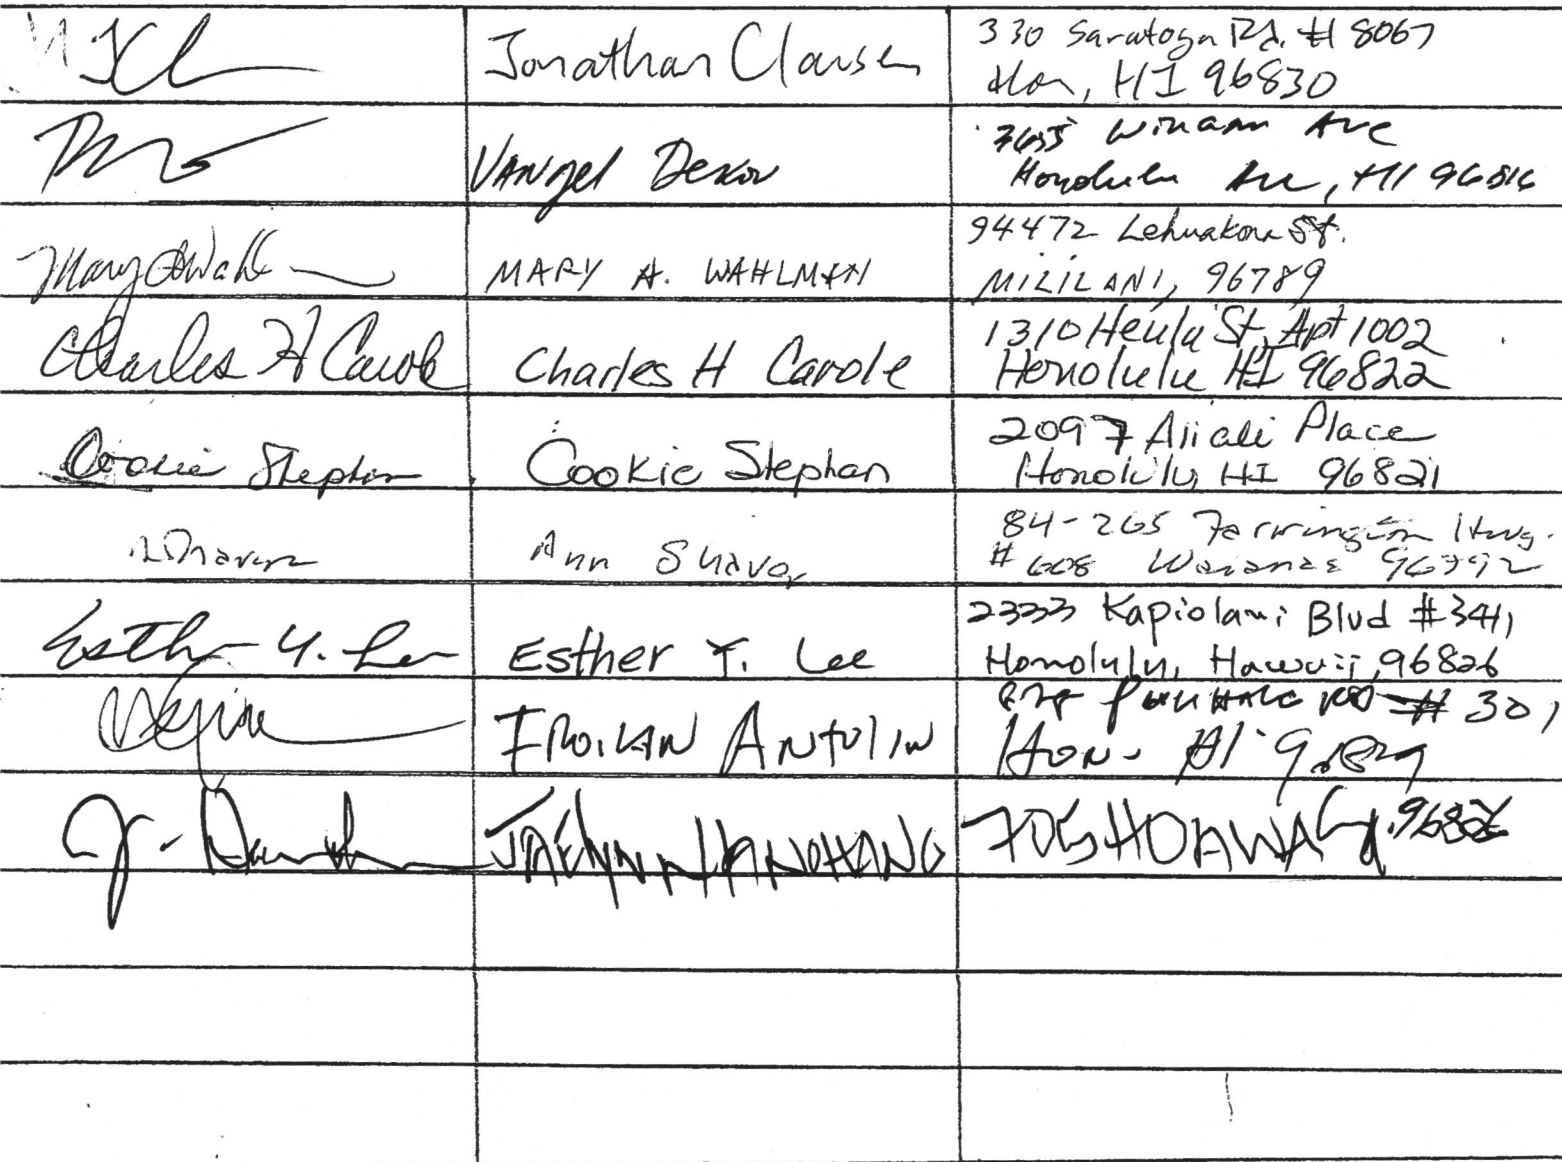 Jonathan Clausen
330 Saratoga Rd. # 8067
Hon, HI 96830
Vangel
3655 Winam Ave
Honolulu Ave, HI 96816
MARY A. WAHLMAN
94472 Lehuakona St.
MILILANI, 96789
Charles H Carole
Charles H Carole
1310 Heulu St, Apt 1002
Honolulu HI 96822
Cookie Stephan
Cookie Stephan
2097 Aliali Place
Honolulu, HI 96821
Ann Shaver
84-265 Farrington Hwy.
# 608 Waianae 96792
Esther Y. Lee
Esther Y. Lee
2333 Kapiolani Blvd #3411
Honolulu, Hawaii, 96826
FROILAN ANTOLIN
# 301
Hon. HI
JAELYNN HANOHANO